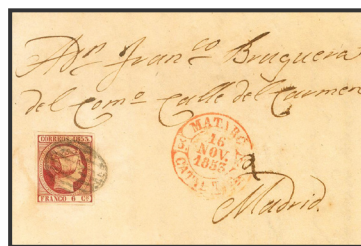 A Dn Franco Bruguera
del Como Calle del Carmen
CORREOS 1853
FRANCO 6 Cs
MATARO
16
NOV.
1853
CATAL
Madrid